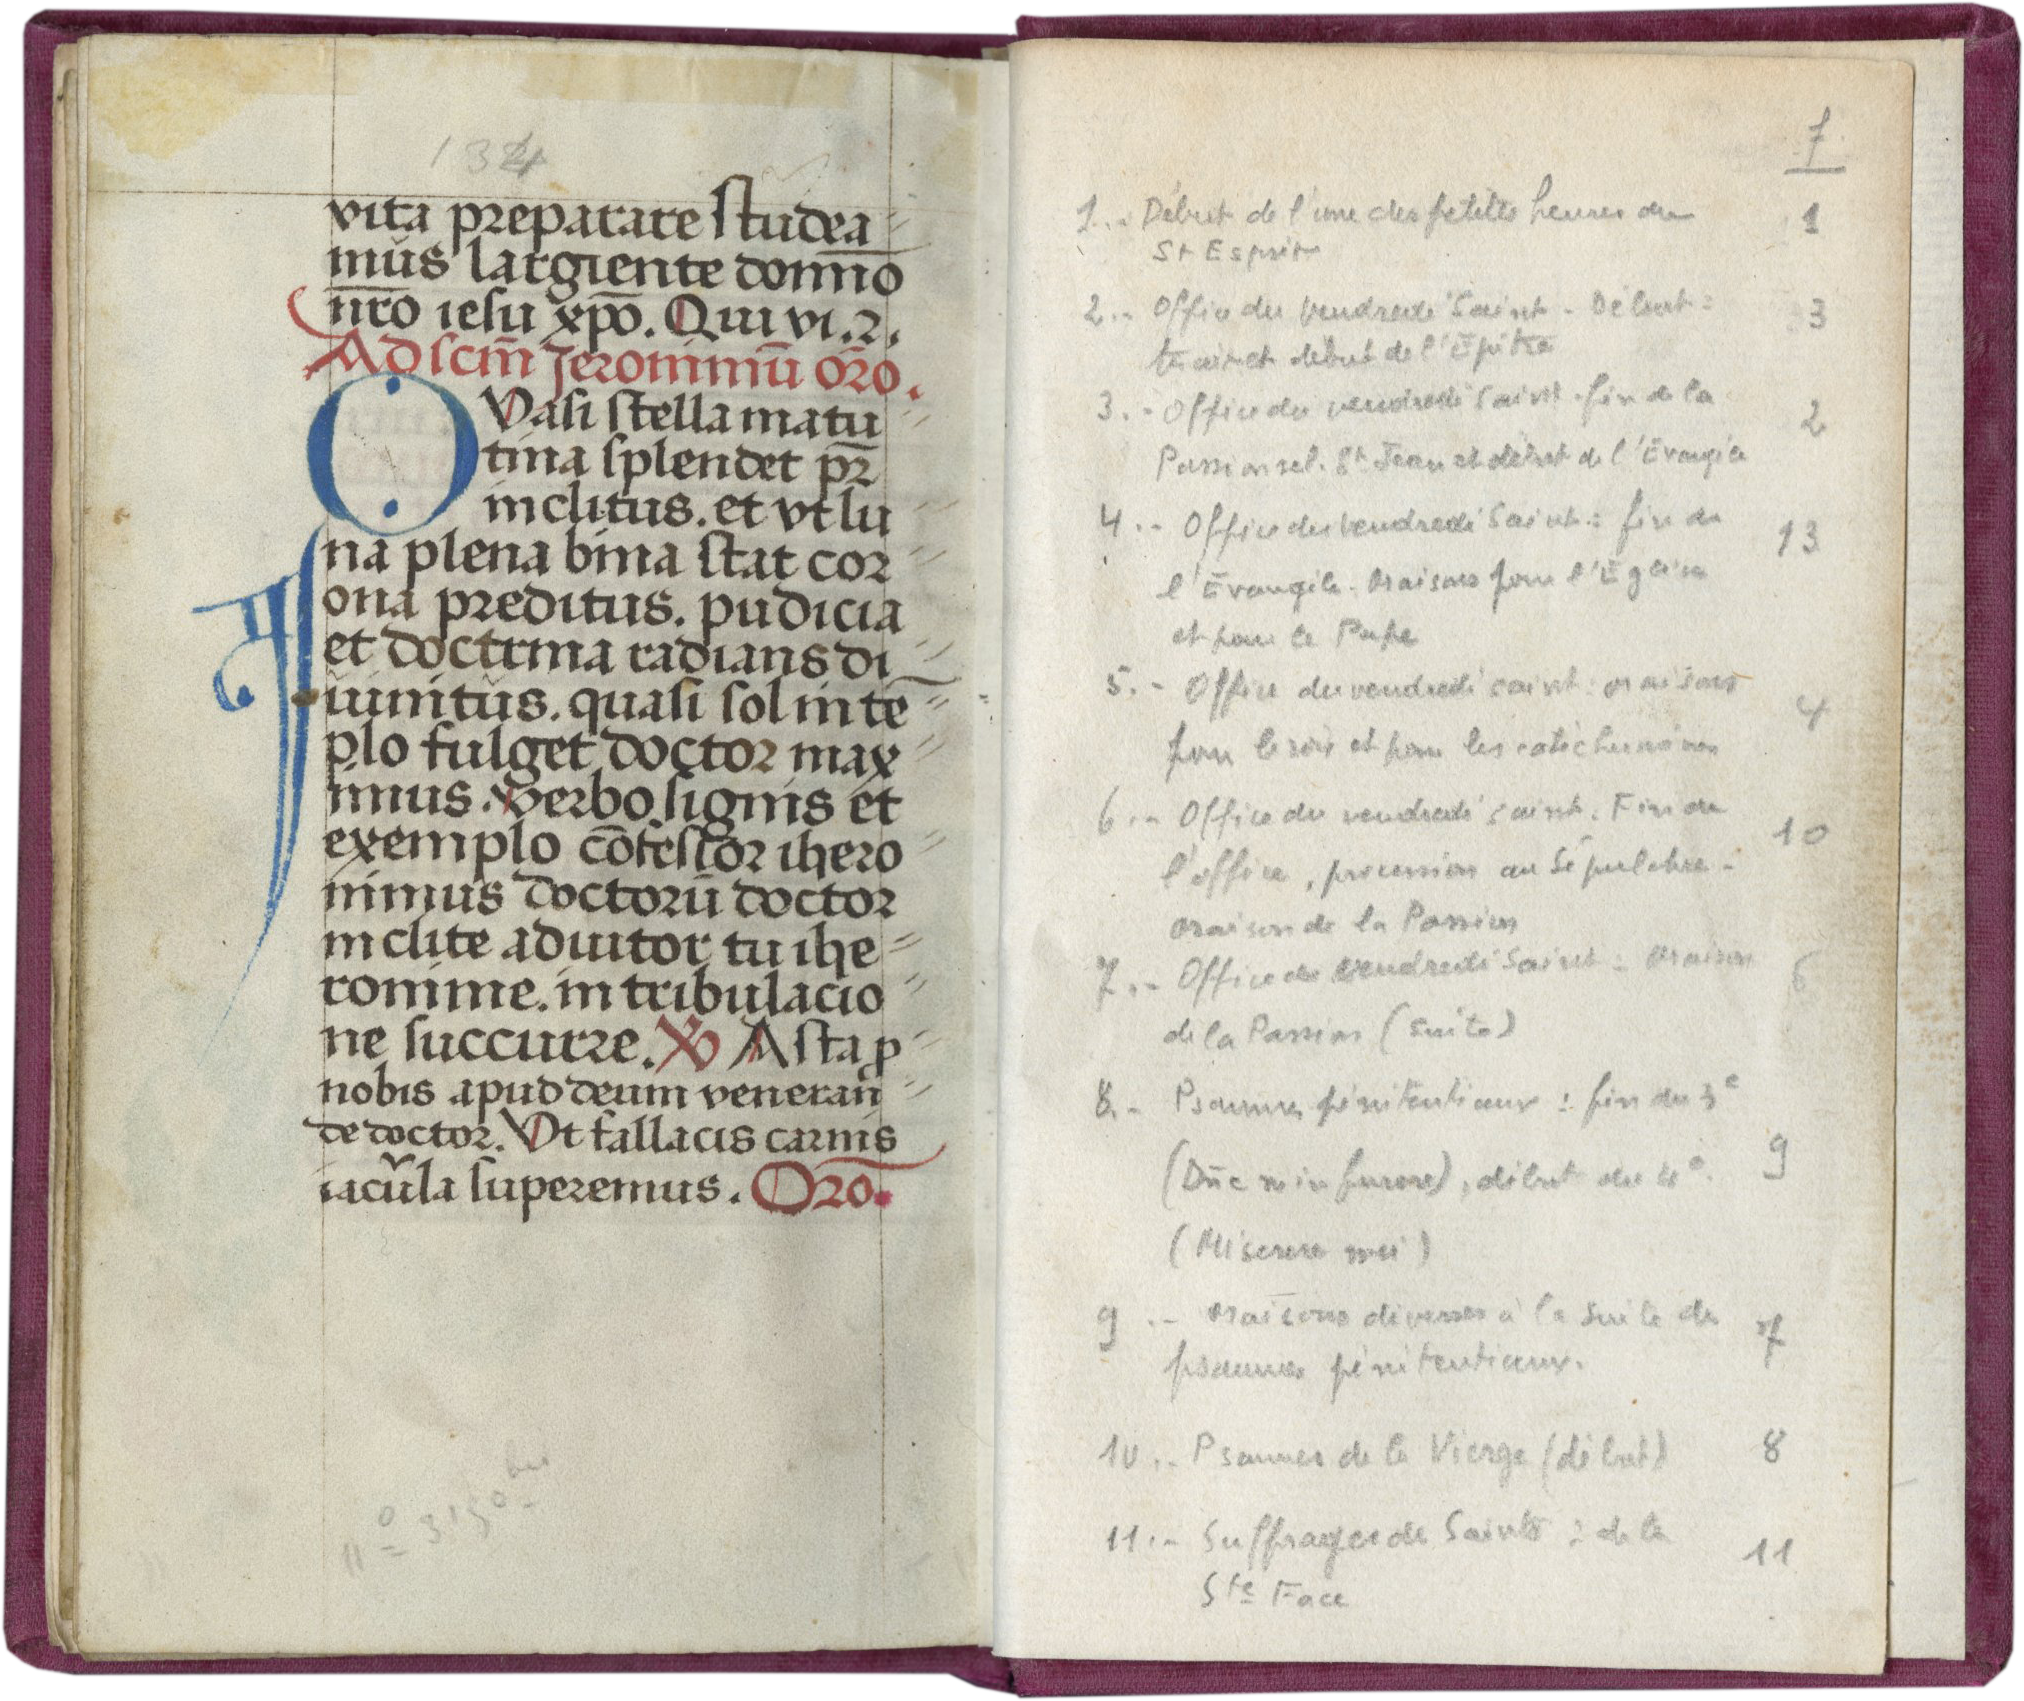 134
vita preparare studea
mus largiente domno
nro iesu xpo. Qui vi. 2.
Ad scm Jeronimu oro.
QVasi stella matu
tina splendet pr
inclitus. et vt lu
na plena bina stat cor
ona preditus. pudicia
et doctrina radians di
uinitus. quasi sol in te
plo fulget doctor max
imus. Verbo signis et
exemplo cofessor ihero
nimus doctoru doctor
inclite adiutor tu ihe
ronime. in tribulacio
ne succurre. V Asta p
nobis apud deum veneran
de doctor. Vt fallacis carnis
iacula superemus. Oro.
f
1.- Début de l'une des petites heures du 1
St Esprit
2.- Office du Vendredi Saint - Début : 3
trait et début de l'Épitre
3.- Office du vendredi saint - fin de la 2
Passion sel. St Jean et début de l'Évangile
4.- Office du Vendredi Saint : fin de 13
l'Évangile. Oraisons pour l'Église
et pour le Pape
5.- Office du vendredi saint : oraisons 4
pour le roi et pour les catéchumènes
6.- Office du vendredi saint. Fin de 10
l'office, procession au Sépulchre -
oraison de la Passion
7.- Office du Vendredi Saint : oraison 6
de la Passion (suite)
8.- Psaumes pénitentiaux : fin du 3e
(Dne ne in furore), début du 4e. 9
(Miserere mei)
9.- oraisons diverses à la suite des 7
psaumes pénitentiaux.
10.- Psaumes de la Vierge (début) 8
11.- Suffrages de Saints : de la 11
Ste Face